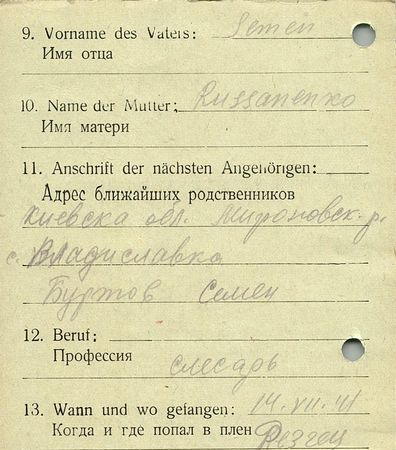 9. Vorname des Vaters: Semen
Имя отца
10. Name der Mutter: Russanenko
Имя матери
11. Anschrift der nächsten Angehörigen:
Адрес ближайших родственников
Киевска обл. Мироновск. р.
с. Владиславка
Буртов Семен
12. Beruf:
Профессия
слесарь
13. Wann und wo gefangen: 14. VII. 41
Когда и где попал в плен